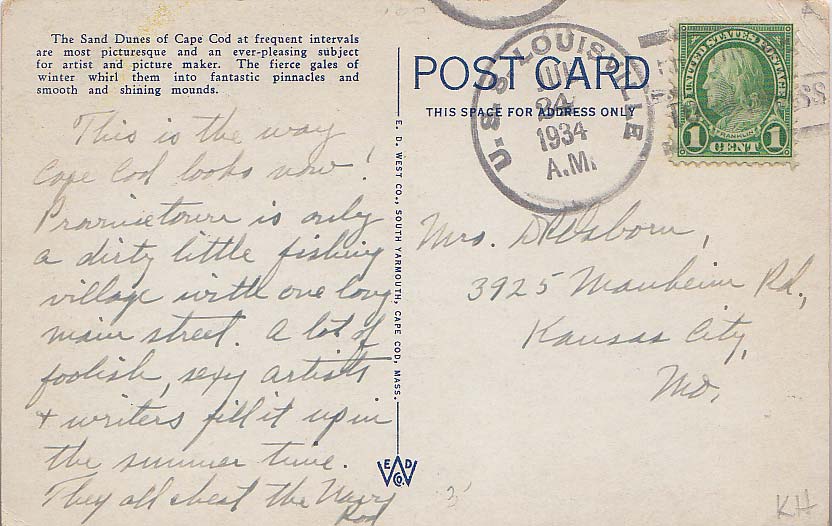 The Sand Dunes of Cape Cod at frequent intervals
are most picturesque and an ever-pleasing subject
for artist and picture maker. The fierce gales of
winter whirl them into fantastic pinnacles and
smooth and shining mounds.
This is the way
Cape Cod looks now!
Provincetown is only
a dirty little fishing
village with one long
main street. A lot of
foolish, sexy artists
& writers fill it up in
the summer time.
They all cheat the Navy
Rod
E. D. WEST CO., SOUTH YARMOUTH, CAPE COD, MASS.
E D
W
CO.
POST CARD
THIS SPACE FOR ADDRESS ONLY
U.S.S. LOUISVILLE
JUL
24
1934
A.M.
UNITED STATES POSTAGE
FRANKLIN
1 CENT 1
Mrs. Osborn,
3925 Manheim Rd.,
Kansas City,
Mo.
3
KH